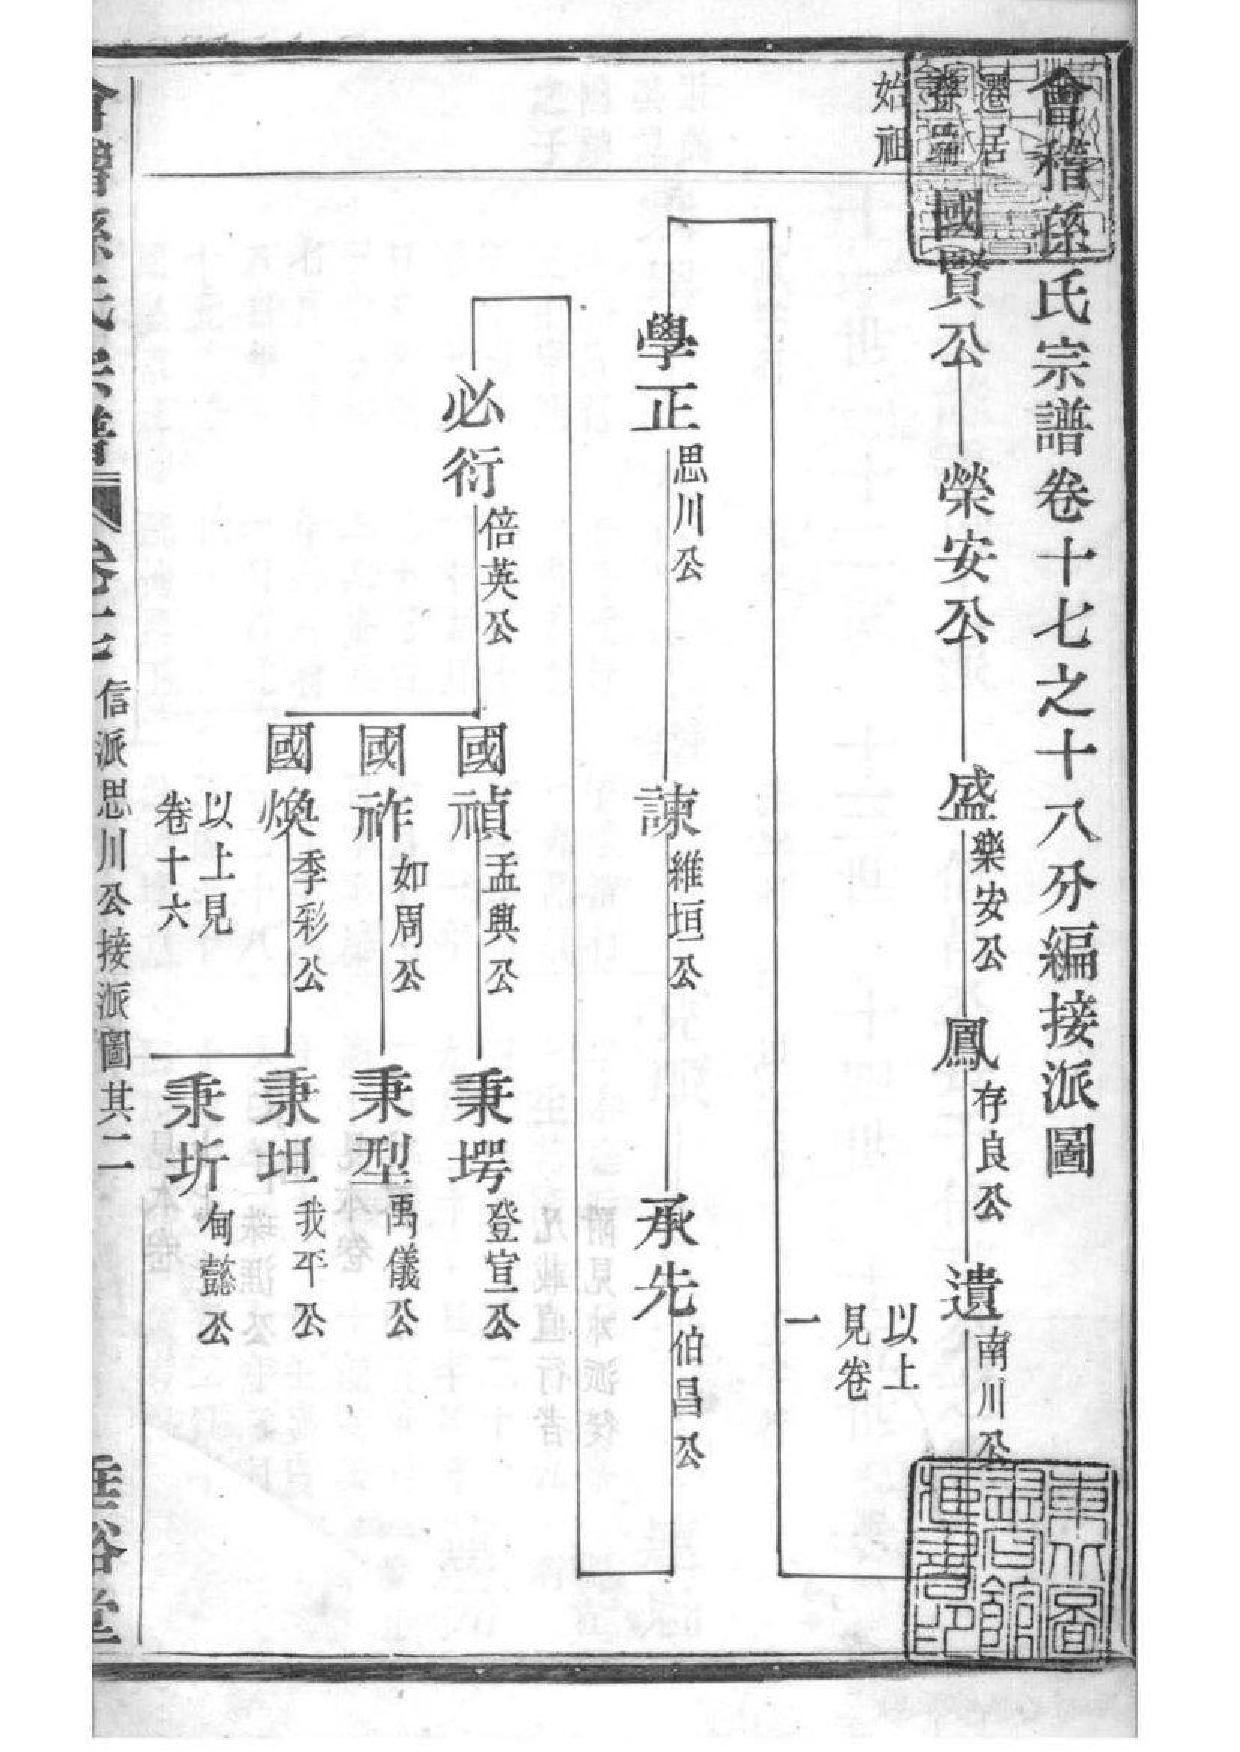 會稽孫氏宗譜卷十七之十八分編接派圖
遷居
孫
始祖
國賢公
榮安公
盛
樂安公
鳳
存良公
遺
南川公
以上
見卷
一
學正
思川公
諫
維垣公
承先
伯昌公
必衍
倍英公
國禎
孟典公
秉堮
登宣公
國祚
如周公
秉型
禹儀公
國煥
季彩公
秉坦
我平公
秉圻
甸懿公
以上見
卷十六
會稽孫氏宗譜
卷十七
信派思川公接派圖其二
垂裕堂